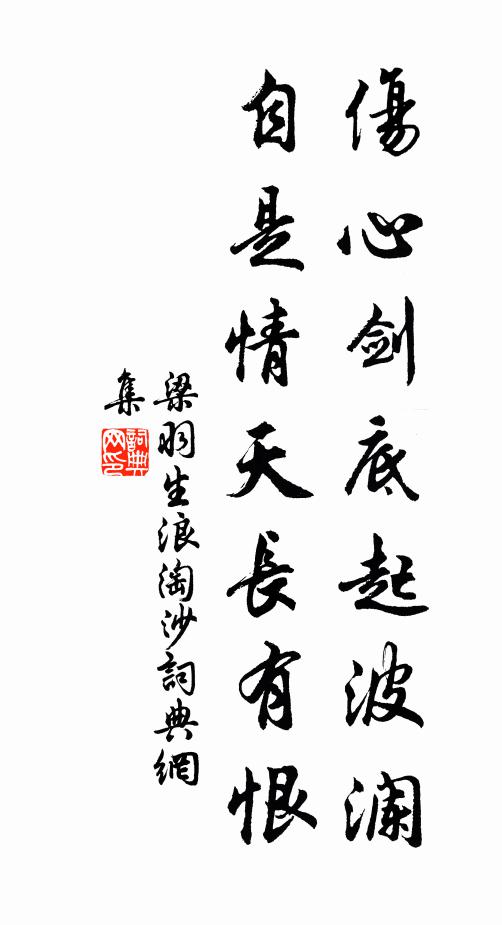 傷心劍底起波瀾
自是情天長有恨
梁羽生浪淘沙詞典網
集
詞典網印